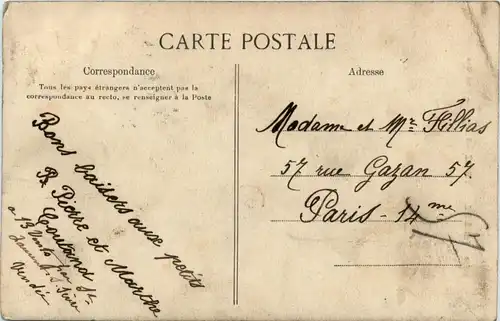 CARTE POSTALE
Correspondance
Tous les pays étrangers n'acceptent pas la
correspondance au recto, se renseigner à la Poste
Bons baisers aux petits
Pierre et Marthe
Coutand
Vendée
Adresse
Madame et Mr Fillias
57 rue Gazan 57.
Paris - 14me
57